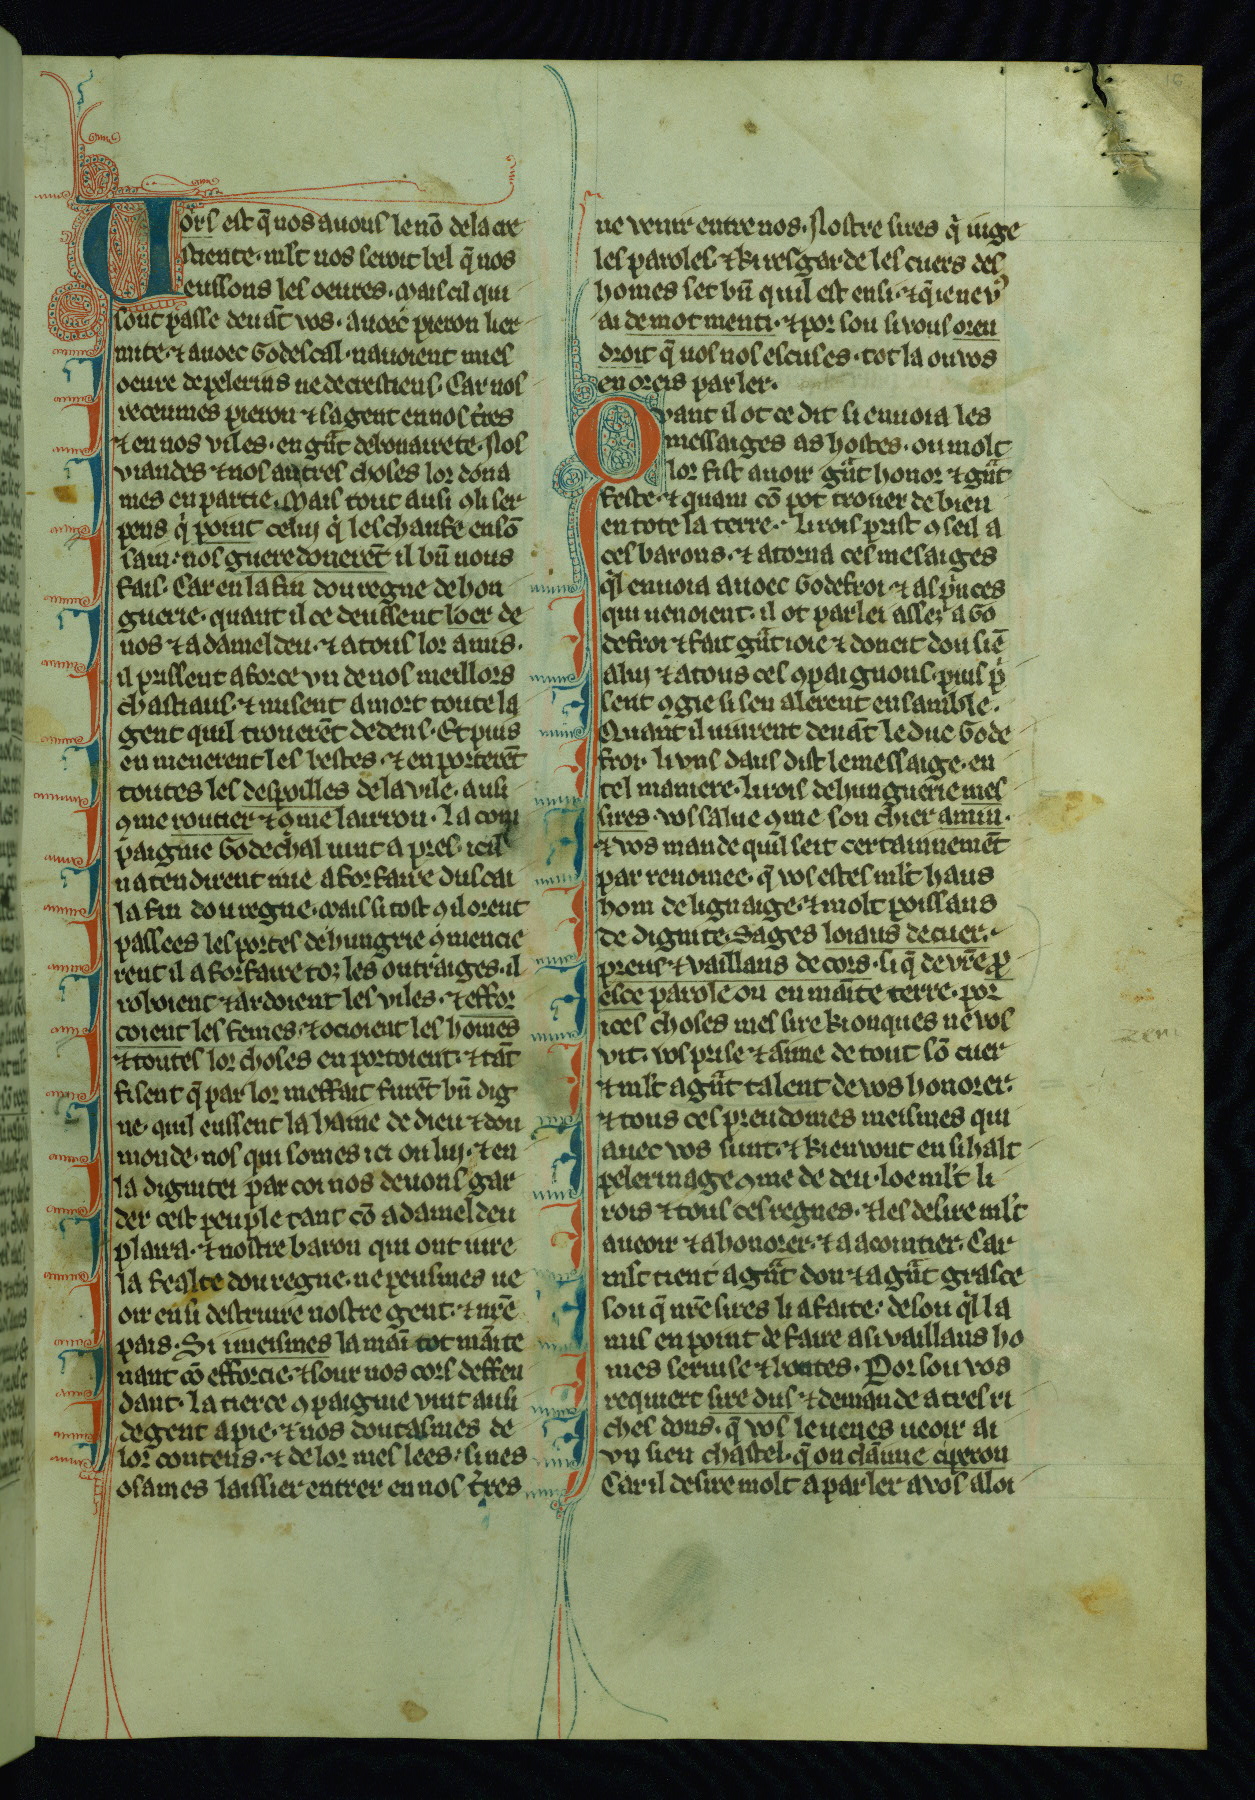 Tors est q̃ nos auons le nõ de la cre
stiente. ml't nos seroit bel q̃ nos
eussons les oeures. mais cil qui
sont passe deuãt vos. auoec pieron lier
mite. ⁊ auoec Godescal. nauoient mies
oeure de pelerins ne de crestiens. Car nos
receumes pieron ⁊ sa gent en nos t̃res
⁊ en nos viles. en gñt debonairete. Nos
viandes ⁊ nos autres choses lor dona
mes en partie. Mais tout ausi ꝯ li ser
pens q̇ point celuj q̇ les chaufe en sõ
sain. nos guere donerẽt il bñ nous
fais. Car en la fin dou regne de hon
guerie. quant il ce deussent loer de
nos ⁊ a dameldeu. ⁊ a tous lor amis.
il prissent a force vn de nos meillors
chastiaus. ⁊ misent a mort toute la
gent quil trouerẽt dedens. Et puis
en menerent les bestes. ⁊ en porterẽt
toutes les despoilles de la vile. ausi
ꝯme routier ⁊ ꝯme larron. La com
paignie Godechal uint apres. icil
natendirent mie a forfaire dusca i
la fin dou regne. mais si tost ꝯ il orent
passees les portes de hungrie ꝯmencie
rent il a forfaire toz les outraiges. il
roboient ⁊ ardoient les viles. ⁊ effor
coient les femes. ⁊ ocioient les homes
⁊ toutes lor choses en portoient. ⁊ tãt
fisent q̃ par lor meffait furẽt bñ dig
ne. quil eussent la haine de dieu ⁊ dou
monde. nos qui somes ici on luj. ⁊ en
la dignitei par coi nos deuons gar
der cest peuple tant cõ a dameldeu
plaira. ⁊ nostre baron qui ont iure
la fealte dou regne. ne peusmes ue
oir ensi destruire nostre gent. ⁊ nr̃e
pais. Si imeismes la mai tot mãite
nant cõ efforcie. ⁊ sour nos cors deffen
dant. La tierce ꝯpaignie vint ausi
de gent a pie. ⁊ nos doutasmes de
lor contens. ⁊ de lor mes lees. si nes
osames laissier entrer en nos t̃res
ne venir entre nos. Nostre sires q̇ iuge
les paroles. ⁊ ki resgarde les cuers des
homes set bñ quil est ensi. ⁊ q̃ ie ne v̾
ai de mot menti. ⁊ por sou si vous oren
droit q̃ vos nos escuses. tot la ou vos
en oreis parler.
Qvant il ot ce dit si enuoia les
messaiges as hostes. ou molt
lor fist auoir gñt honor ⁊ gñt
feste. ⁊ quam cõ pot trouer de bien
en tote la terre. Li rois prist ꝯseil a
ces barons. ⁊ atorna ces mesaiges
q̇l enuoia auoec Godefroi ⁊ as p̃nces
qui uenoient. il ot parlei assez a Go
defroi ⁊ fait gñt ioie ⁊ doneit dou siẽ
a luj ⁊ a tous ces ꝯpaignons. puis p̃
sent ꝯgie si sen alerent ensamble.
Quãt il uinrent deuãt le duc Gode
froi. li vns daus dist le messaige. en
tel maniere. li rois de hunguerie mes
sires. vos salue ꝯme son chier amin.
⁊ vos mande quil seit certainnemẽt
par renomee. q̃ vos estes ml't haus
hom de lignaige. ⁊ molt poissans
de dignite. Sages loiaus de cuer.
preus ⁊ vaillans de cors. si q̃ de vr̃e ꝓ
esce parole ou en mãite terre. por
ices choses mes sire ki onques ne vos
vit. vos prise ⁊ ãime de tout sõ cuer
⁊ ml't a gñt talent de vos honorer.
⁊ tous ces preudomes meismes qui
auec vos sunt. ⁊ ki en vont en si halt
pelerinage ꝯme de deu. loe ml't li
rois ⁊ tous ces regnes. ⁊ les desire ml't
a ueoir ⁊ a honorer. ⁊ a acointier. Car
ml't tient a gñt don ⁊ a gñt grasce
sou q̃ nr̃e sires li a faite. de sou q̇l la
mis en point de faire a si vaillans ho
mes seruise ⁊ bontes. Por sou vos
requiert sire dus. ⁊ demande a tres ri
ches dons. q̃ vos le uenes ueoir a i
vn sien chastel. q̃ on clãme ciperon
Car il desire molt a parler a vos a loi